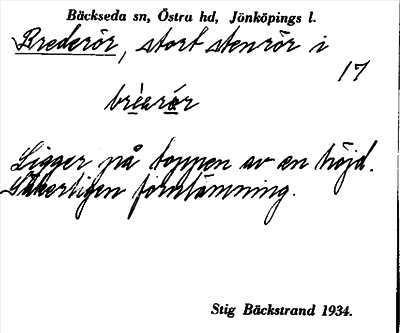 Bäckseda sn, Östra hd, Jönköpings l.
Brederör, stort stenrör i
17
Ligger på toppen av en höjd.
Säkerligen fornlämning.
Stig Bäckstrand 1934.